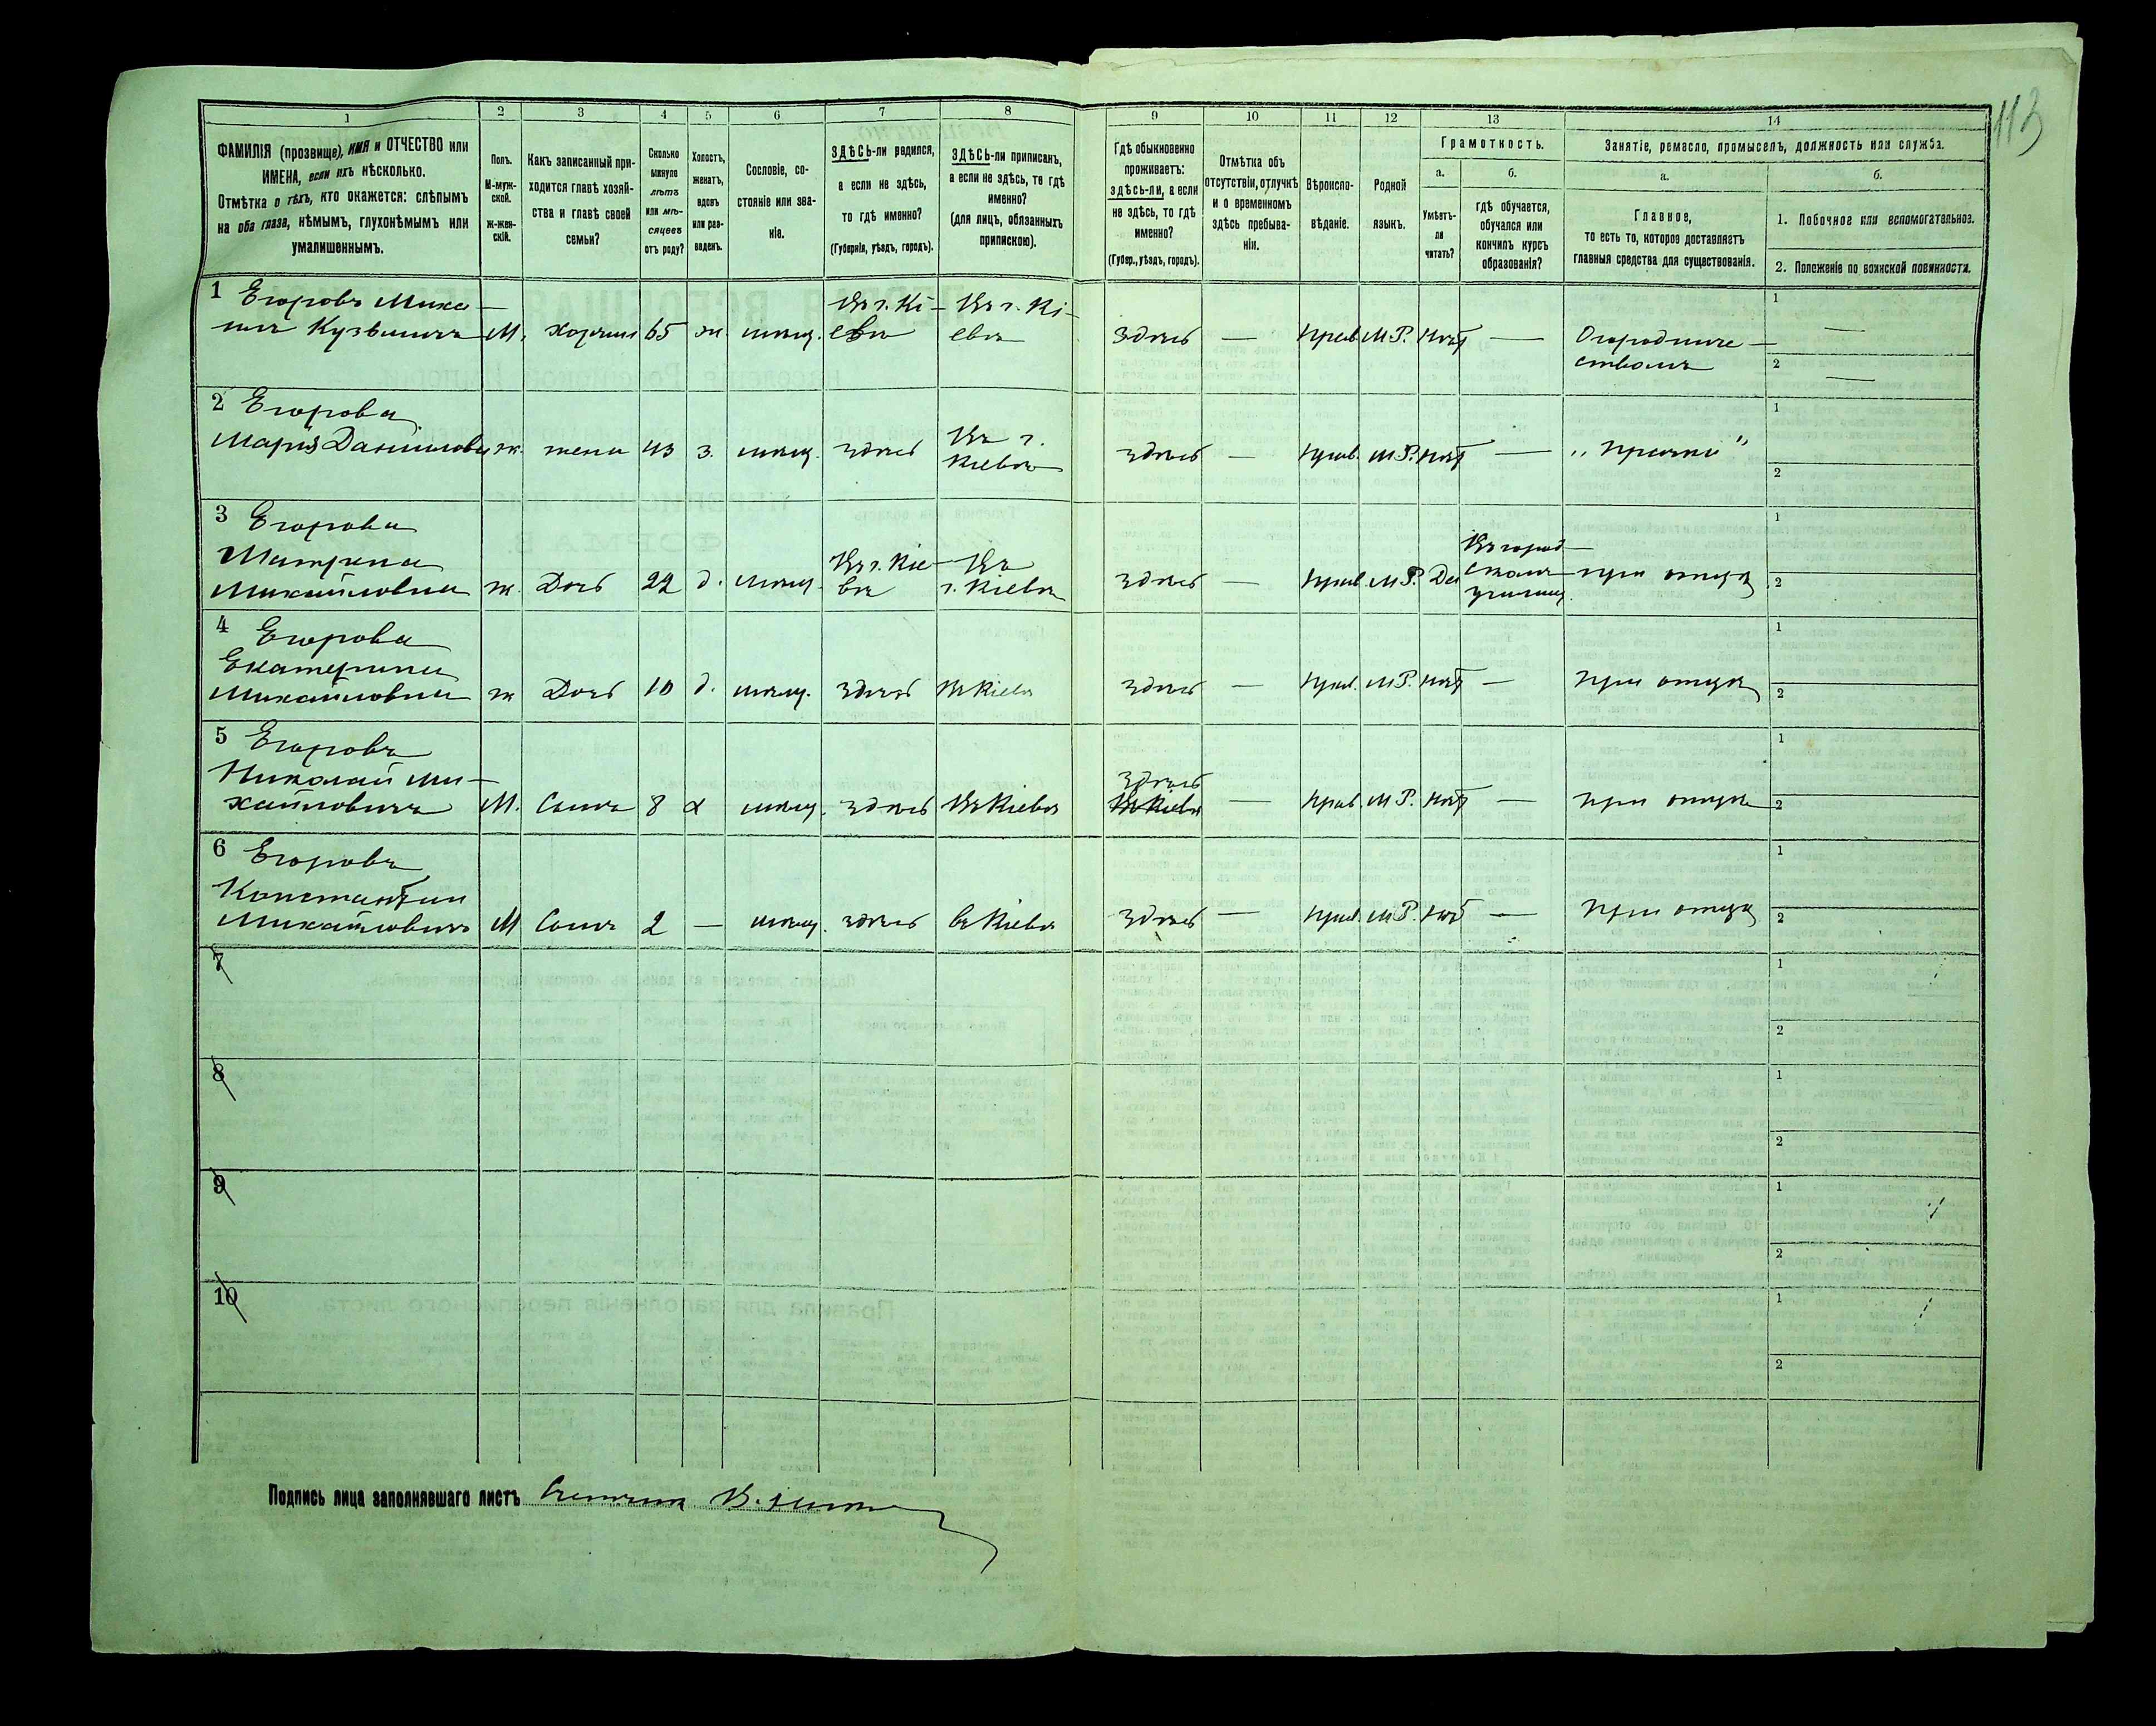 113
1 2 3 4 5 6 7 8 9 10 11 12 13 14
ФАМИЛІЯ (прозвище), ИМЯ и ОТЧЕСТВО или
ИМЕНА, если ихъ нѣсколько.
Отмѣтка о тѣхъ, кто окажется: слѣпымъ
на оба глаза, нѣмымъ, глухонѣмымъ или
умалишеннымъ.
Полъ.
М-муж-
ской.
Ж-жен-
скій.
Какъ записанный при-
ходится главѣ хозяй-
ства и главѣ своей
семьи?
Сколько
минуло
лѣтъ
или мѣ-
сяцевъ
отъ роду?
Холостъ,
женатъ,
вдовъ
или раз-
веденъ.
Сословіе, со-
стояніе или зва-
ніе.
ЗДѢСЬ-ли родился,
а если не здѣсь,
то гдѣ именно?
(Губернія, уѣздъ, городъ).
ЗДѢСЬ-ли приписанъ,
а если не здѣсь, то гдѣ
именно?
(для лицъ, обязанныхъ
припискою).
Гдѣ обыкновенно
проживаетъ:
здѣсь-ли, а если
не здѣсь, то гдѣ
именно?
(Губер., уѣздъ, городъ).
Отмѣтка объ
отсутствіи, отлучкѣ
и о временномъ
здѣсь пребыва-
ніи.
Вѣроиспо-
вѣданіе.
Родной
языкъ.
Грамотность.
а.
Умѣетъ-
ли
читать?
б.
гдѣ обучается,
обучался или
кончилъ курсъ
образованія?
Занятіе, ремесло, промыселъ, должность или служба.
а.
Главное,
то есть то, которое доставляетъ
главныя средства для существованія.
б.
1. Побочное или вспомогательное.
2. Положеніе по воинской повинности.
1 Егоровъ Миха-
илъ Кузьмичъ М. хозяинъ 65 ж. мѣщ. Въ г. Кі-
евѣ Въ г. Кі-
евѣ здѣсь — прав. М.Р. нѣт — Огородниче-
ствомъ 1 — 2 —
2 Егорова
Марія Даниловна ж. жена 43 з. мѣщ. здѣсь Въ г.
Кіевѣ здѣсь — прав. М.Р. нѣт — „ прачка " 1 2
3 Егорова
Матрена
Михайловна ж. Дочь 22 д. мѣщ. Въ г. Кіе-
вѣ Въ
г. Кіевѣ здѣсь — прав. М.Р. Да Въ город-
скомъ
училищ. при отцѣ 1 2
4 Егорова
Екатерина
Михайловна ж Дочь 10 д. мѣщ. здѣсь Въ Кіевѣ здѣсь — прав. М.Р. нѣт — при отцѣ 1 2
5 Егоровъ
Николай Ми-
хайловичъ М. Сынъ 8 х мѣщ. здѣсь Въ Кіевѣ здѣсь
Въ Кіевѣ — прав. М.Р. нѣт — при отцѣ 1 2
6 Егоровъ
Константин
Михайловичъ М Сынъ 2 — мѣщ. здѣсь въ Кіевѣ здѣсь — прав. М.Р. нѣт — при отцѣ 1 2
7 1 2
8 1 2
9 1 2
10 1 2
Подпись лица заполнявшаго листъ